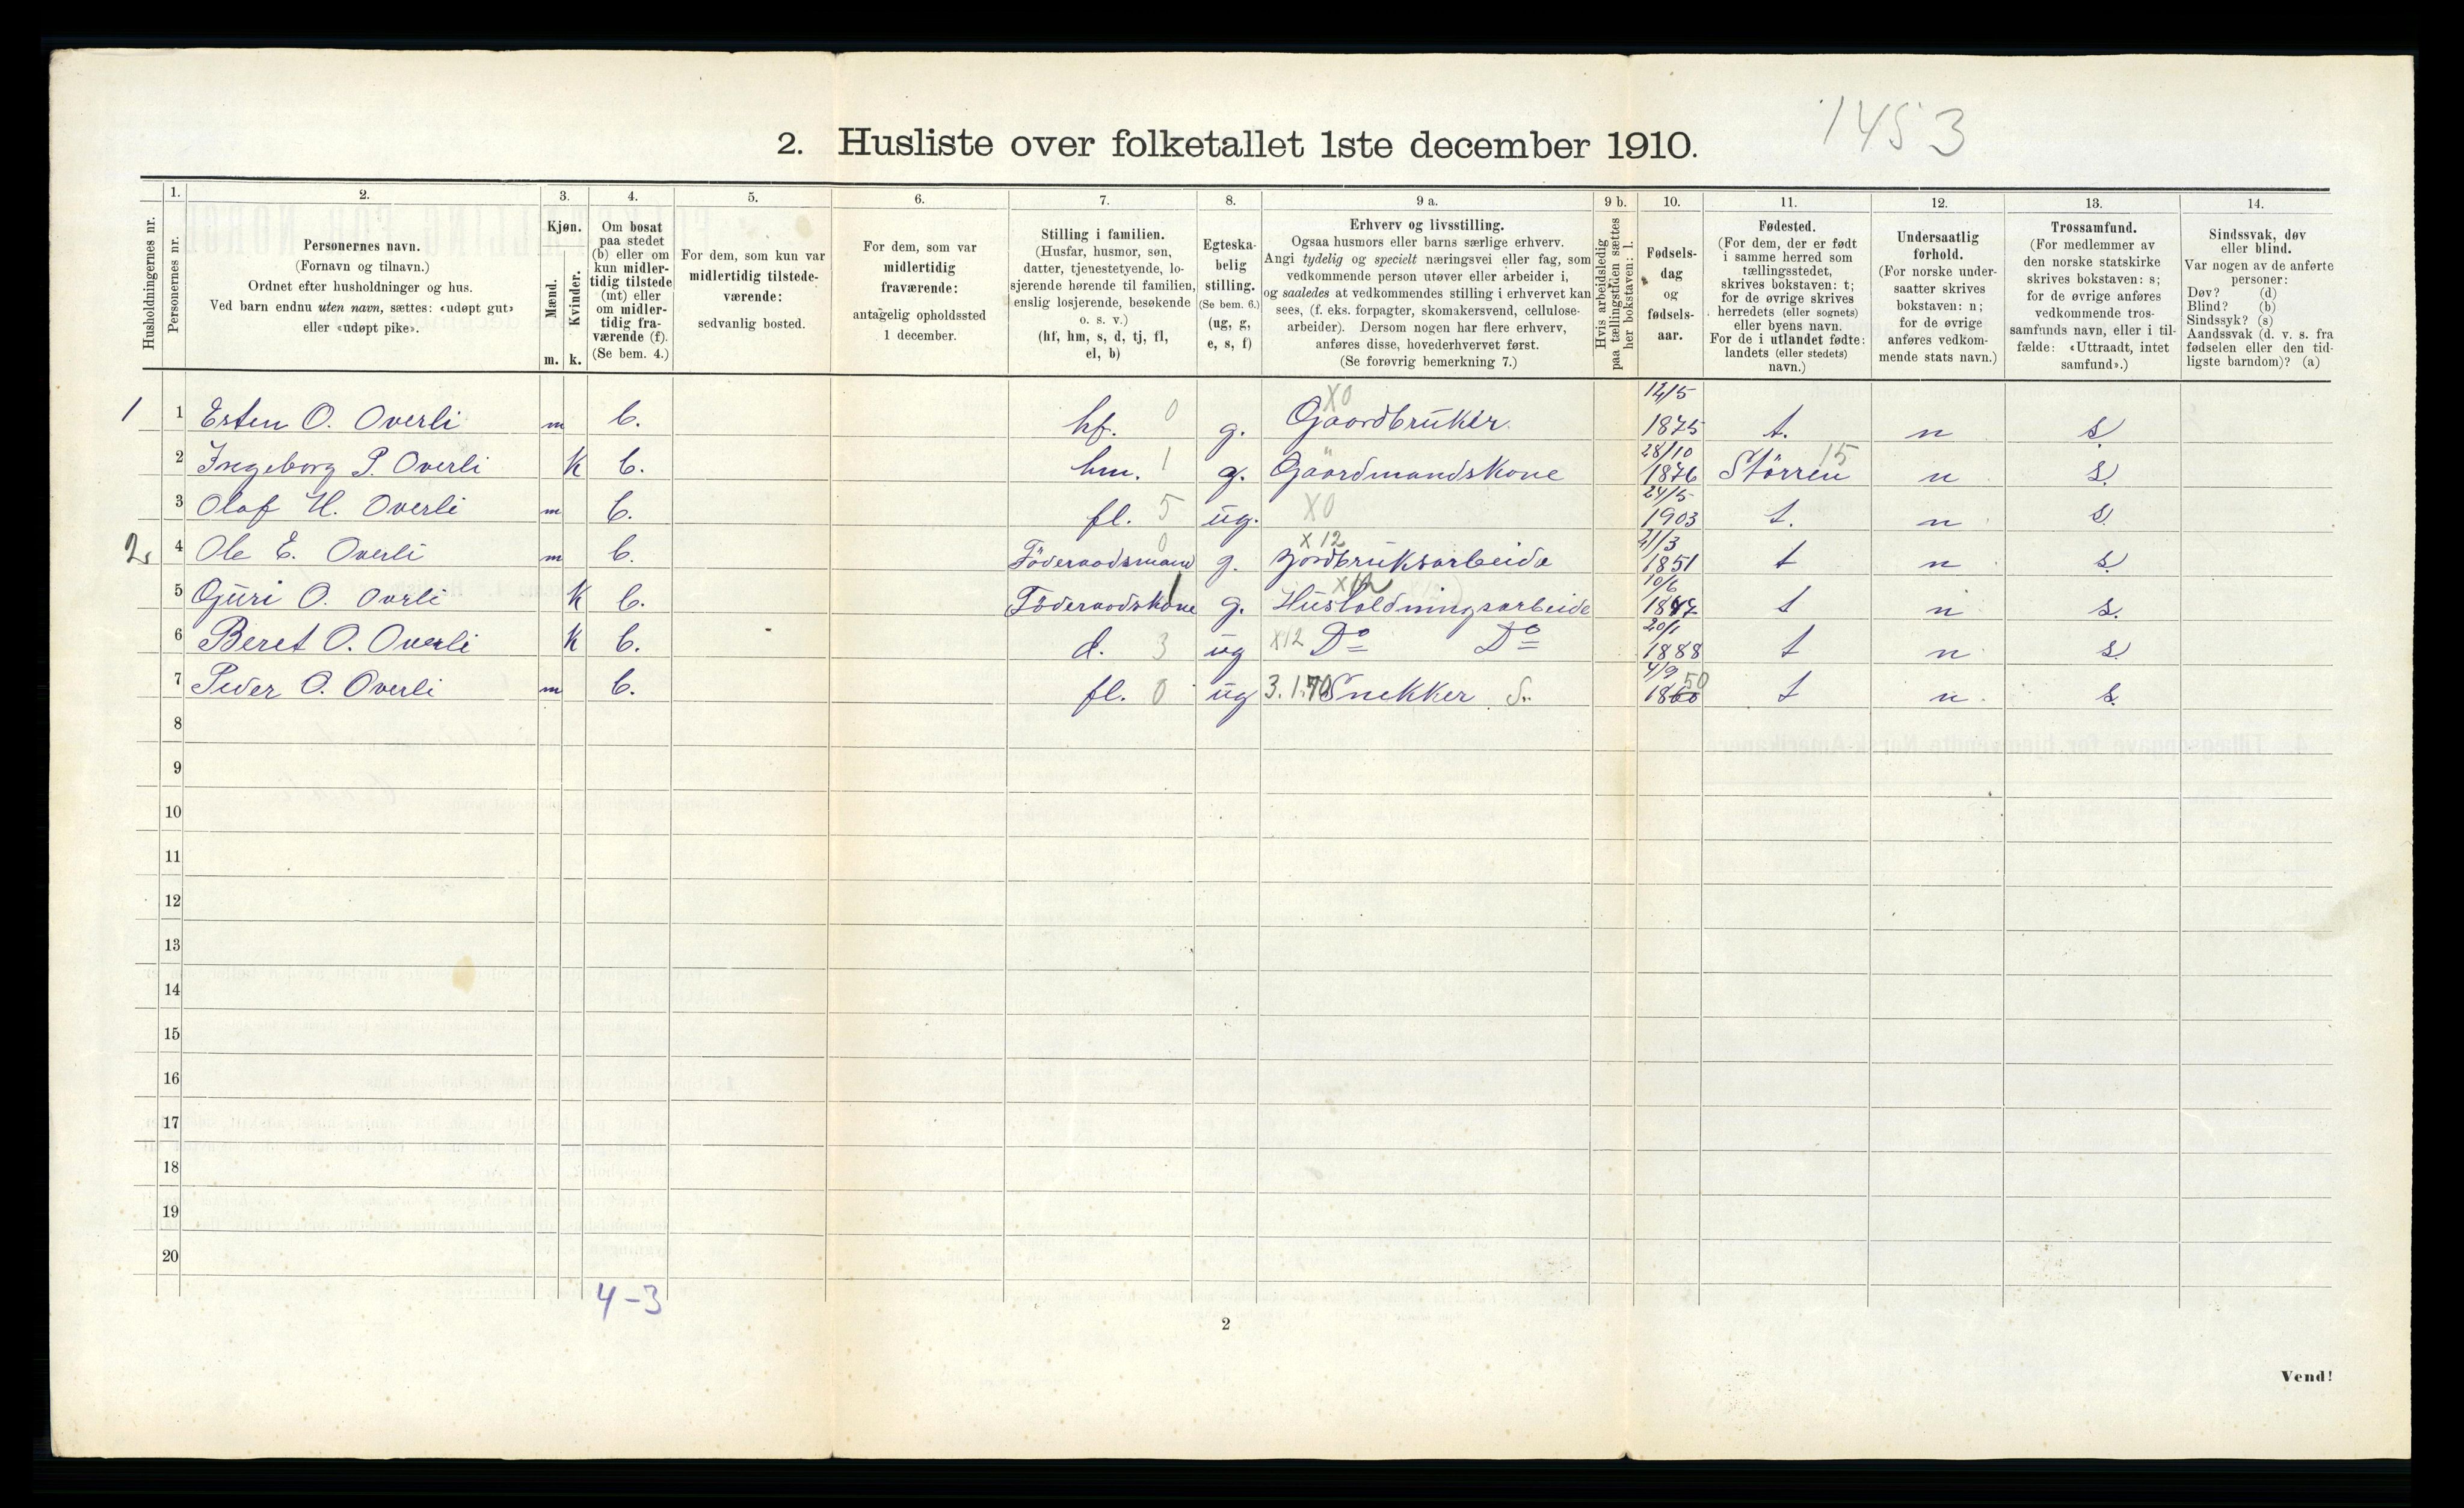 1453
2. Husliste over folketallet 1ste december 1910.
Husholdningernes nr.
1. Personernes nr.
2. Personernes navn. (Fornavn og tilnavn.) Ordnet efter husholdninger og hus. Ved barn endnu uten navn, sættes: «udøpt gut» eller «udøpt pike».
3. Kjøn. Mænd. m. Kvinder. k.
4. Om bosat paa stedet (b) eller om kun midlertidig tilstede (mt) eller om midlertidig fraværende (f). (Se bem. 4.)
5. For dem, som kun var midlertidig tilstedeværende: sedvanlig bosted.
6. For dem, som var midlertidig fraværende: antagelig opholdssted 1 december.
7. Stilling i familien. (Husfar, husmor, søn, datter, tjenestetyende, losjerende hørende til familien, enslig losjerende, besøkende o. s. v.) (hf, hm, s, d, tj, fl, el, b)
8. Egteskabelig stilling. (Se bem. 6.) (ug, g, e, s, f)
9 a. Erhverv og livsstilling. Ogsaa husmors eller barns særlige erhverv. Angi tydelig og specielt næringsvei eller fag, som vedkommende person utøver eller arbeider i, og saaledes at vedkommendes stilling i erhvervet kan sees, (f. eks. forpagter, skomakersvend, cellulosearbeider). Dersom nogen har flere erhverv, anføres disse, hovederhvervet først. (Se forøvrig bemerkning 7.)
9 b. Hvis arbeidsledig paa tællingstiden sættes her bokstaven: l.
10. Fødselsdag og fødselsaar.
11. Fødested. (For dem, der er født i samme herred som tællingsstedet, skrives bokstaven: t; for de øvrige skrives herredets (eller sognets) eller byens navn. For de i utlandet fødte: landets (eller stedets) navn.)
12. Undersaatlig forhold. (For norske undersaatter skrives bokstaven: n; for de øvrige anføres vedkommende stats navn.)
13. Trossamfund. (For medlemmer av den norske statskirke skrives bokstaven: s; for de øvrige anføres vedkommende trossamfunds navn, eller i tilfælde: «Uttraadt, intet samfund».)
14. Sindssvak, døv eller blind. Var nogen av de anførte personer: Døv? (d) Blind? (b) Sindssyk? (s) Aandssvak (d. v. s. fra fødselen eller den tidligste barndom)? (a)
1 1 Esten O. Overli m b. hf. 0 g. X0 Gaardbruker. 12/5 1875 t. n s
2 Ingeborg P. Overli k b. hm. 1 g. Gaardmandskone 28/10 1876 Störren 15 n s.
3 Olaf H. Overli m b. fl. 5 ug. X0 24/5 1903 t. n s.
2. 4 Ole E. Overli m b. Föderaadsmand 0 g. X 12 Jordbruksarbeide 21/3 1851 t n s
5 Guri O. Overli k b. Föderaadskone 1 g. Husholdningsarbeide 10/6 1847 t n s.
6 Beret O. Overli k b. d. 3 ug X12 Do Do 20/1 1888 t n s
7 Peder O. Overli m b. fl. 0 ug 3.1.70 Snekker S. 4/9 1860 50 t n s.
8
9
10
11
12
13
14
15
16
17
18
19
20
4-3
2
Vend!